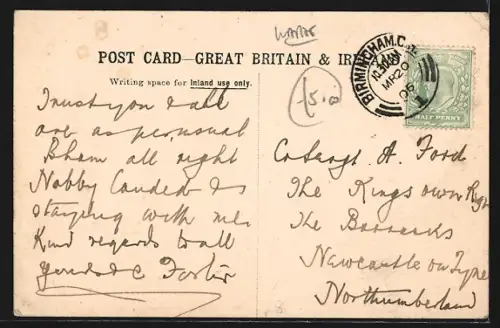 POST CARD—GREAT BRITAIN & IRELAND
Writing space for Inland use only.
BIRMINGHAM.C
10.30
MR 29
06
HALF PENNY
Trust you & all
are as per usual
Bham all right
Nobby Landed & is
staying with me
Kind regards to all
Yours C Foster
Sergt A. Ford
The Kings own Regt
The Barracks
Newcastle on Tyne
Northumberland